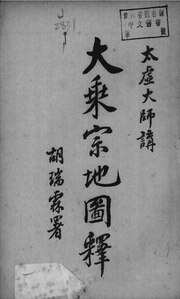 太虛大師講
大乘宗地圖釋
胡瑞霖署